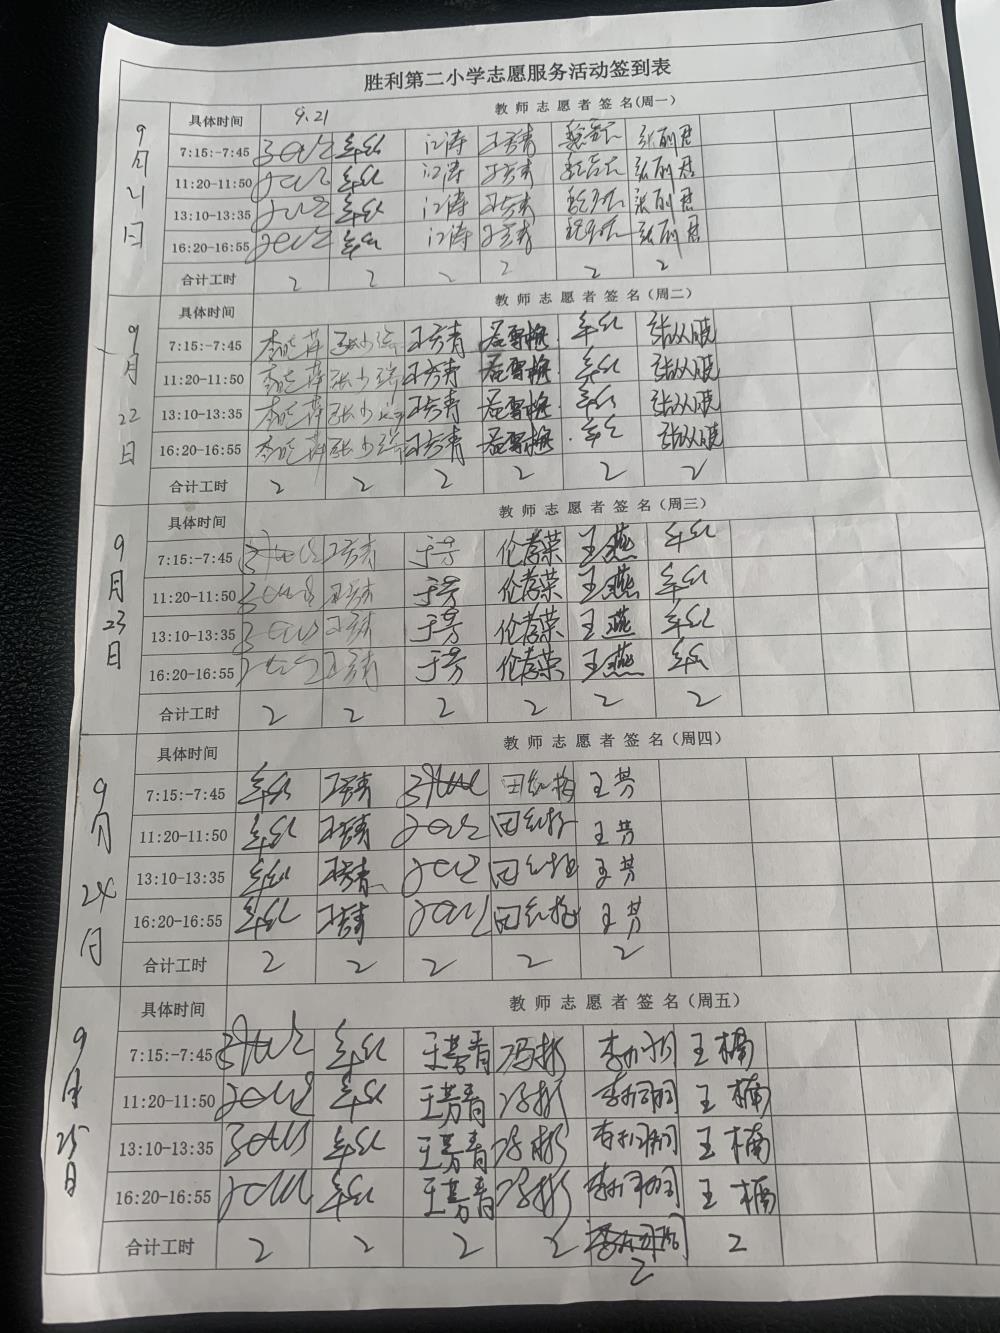 胜利第二小学志愿服务活动签到表
9月21日
具体时间 9.21 教师志愿者签名(周一)
7:15:-7:45 车红 江涛 王芳青 张丽君
11:20-11:50 车红 江涛 王芳青 张丽君
13:10-13:35 车红 江涛 王芳青 张丽君
16:20-16:55 车红 江涛 王芳青 张丽君
合计工时 2 2 2 2 2 2
9月22日
具体时间 教师志愿者签名(周二)
7:15:-7:45 李晓萍 张少瑞 王芳青 车红 张从晓
11:20-11:50 李晓萍 张少瑞 王芳青 车红 张从晓
13:10-13:35 李晓萍 张少瑞 王芳青 车红 张从晓
16:20-16:55 李晓萍 张少瑞 王芳青 车红 张从晓
合计工时 2 2 2 2 2 2
9月23日
具体时间 教师志愿者签名(周三)
7:15:-7:45 王芳青 于芳 伦孝荣 王燕 车红
11:20-11:50 王芳青 于芳 伦孝荣 王燕 车红
13:10-13:35 王芳青 于芳 伦孝荣 王燕 车红
16:20-16:55 王芳青 于芳 伦孝荣 王燕 车红
合计工时 2 2 2 2 2 2
9月24日
具体时间 教师志愿者签名(周四)
7:15:-7:45 车红 王芳青 田红梅 王芳
11:20-11:50 车红 王芳青 田红梅 王芳
13:10-13:35 车红 王芳青 田红梅 王芳
16:20-16:55 车红 王芳青 田红梅 王芳
合计工时 2 2 2 2 2
9月25日
具体时间 教师志愿者签名(周五)
7:15:-7:45 车红 王芳青 王楠
11:20-11:50 车红 王芳青 王楠
13:10-13:35 车红 王芳青 王楠
16:20-16:55 车红 王芳青 王楠
合计工时 2 2 2 2 2 2